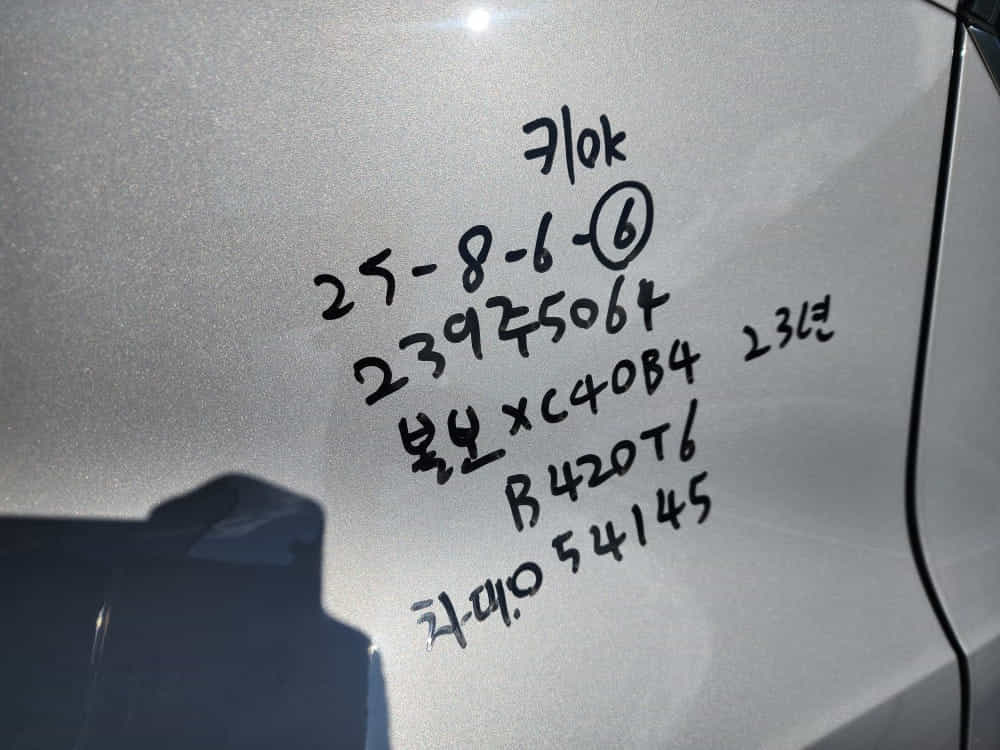 키이ㅏ
25-8-6-⑥
239주5064
볼보 XC40B4 23년
B420T6
차대: 054145